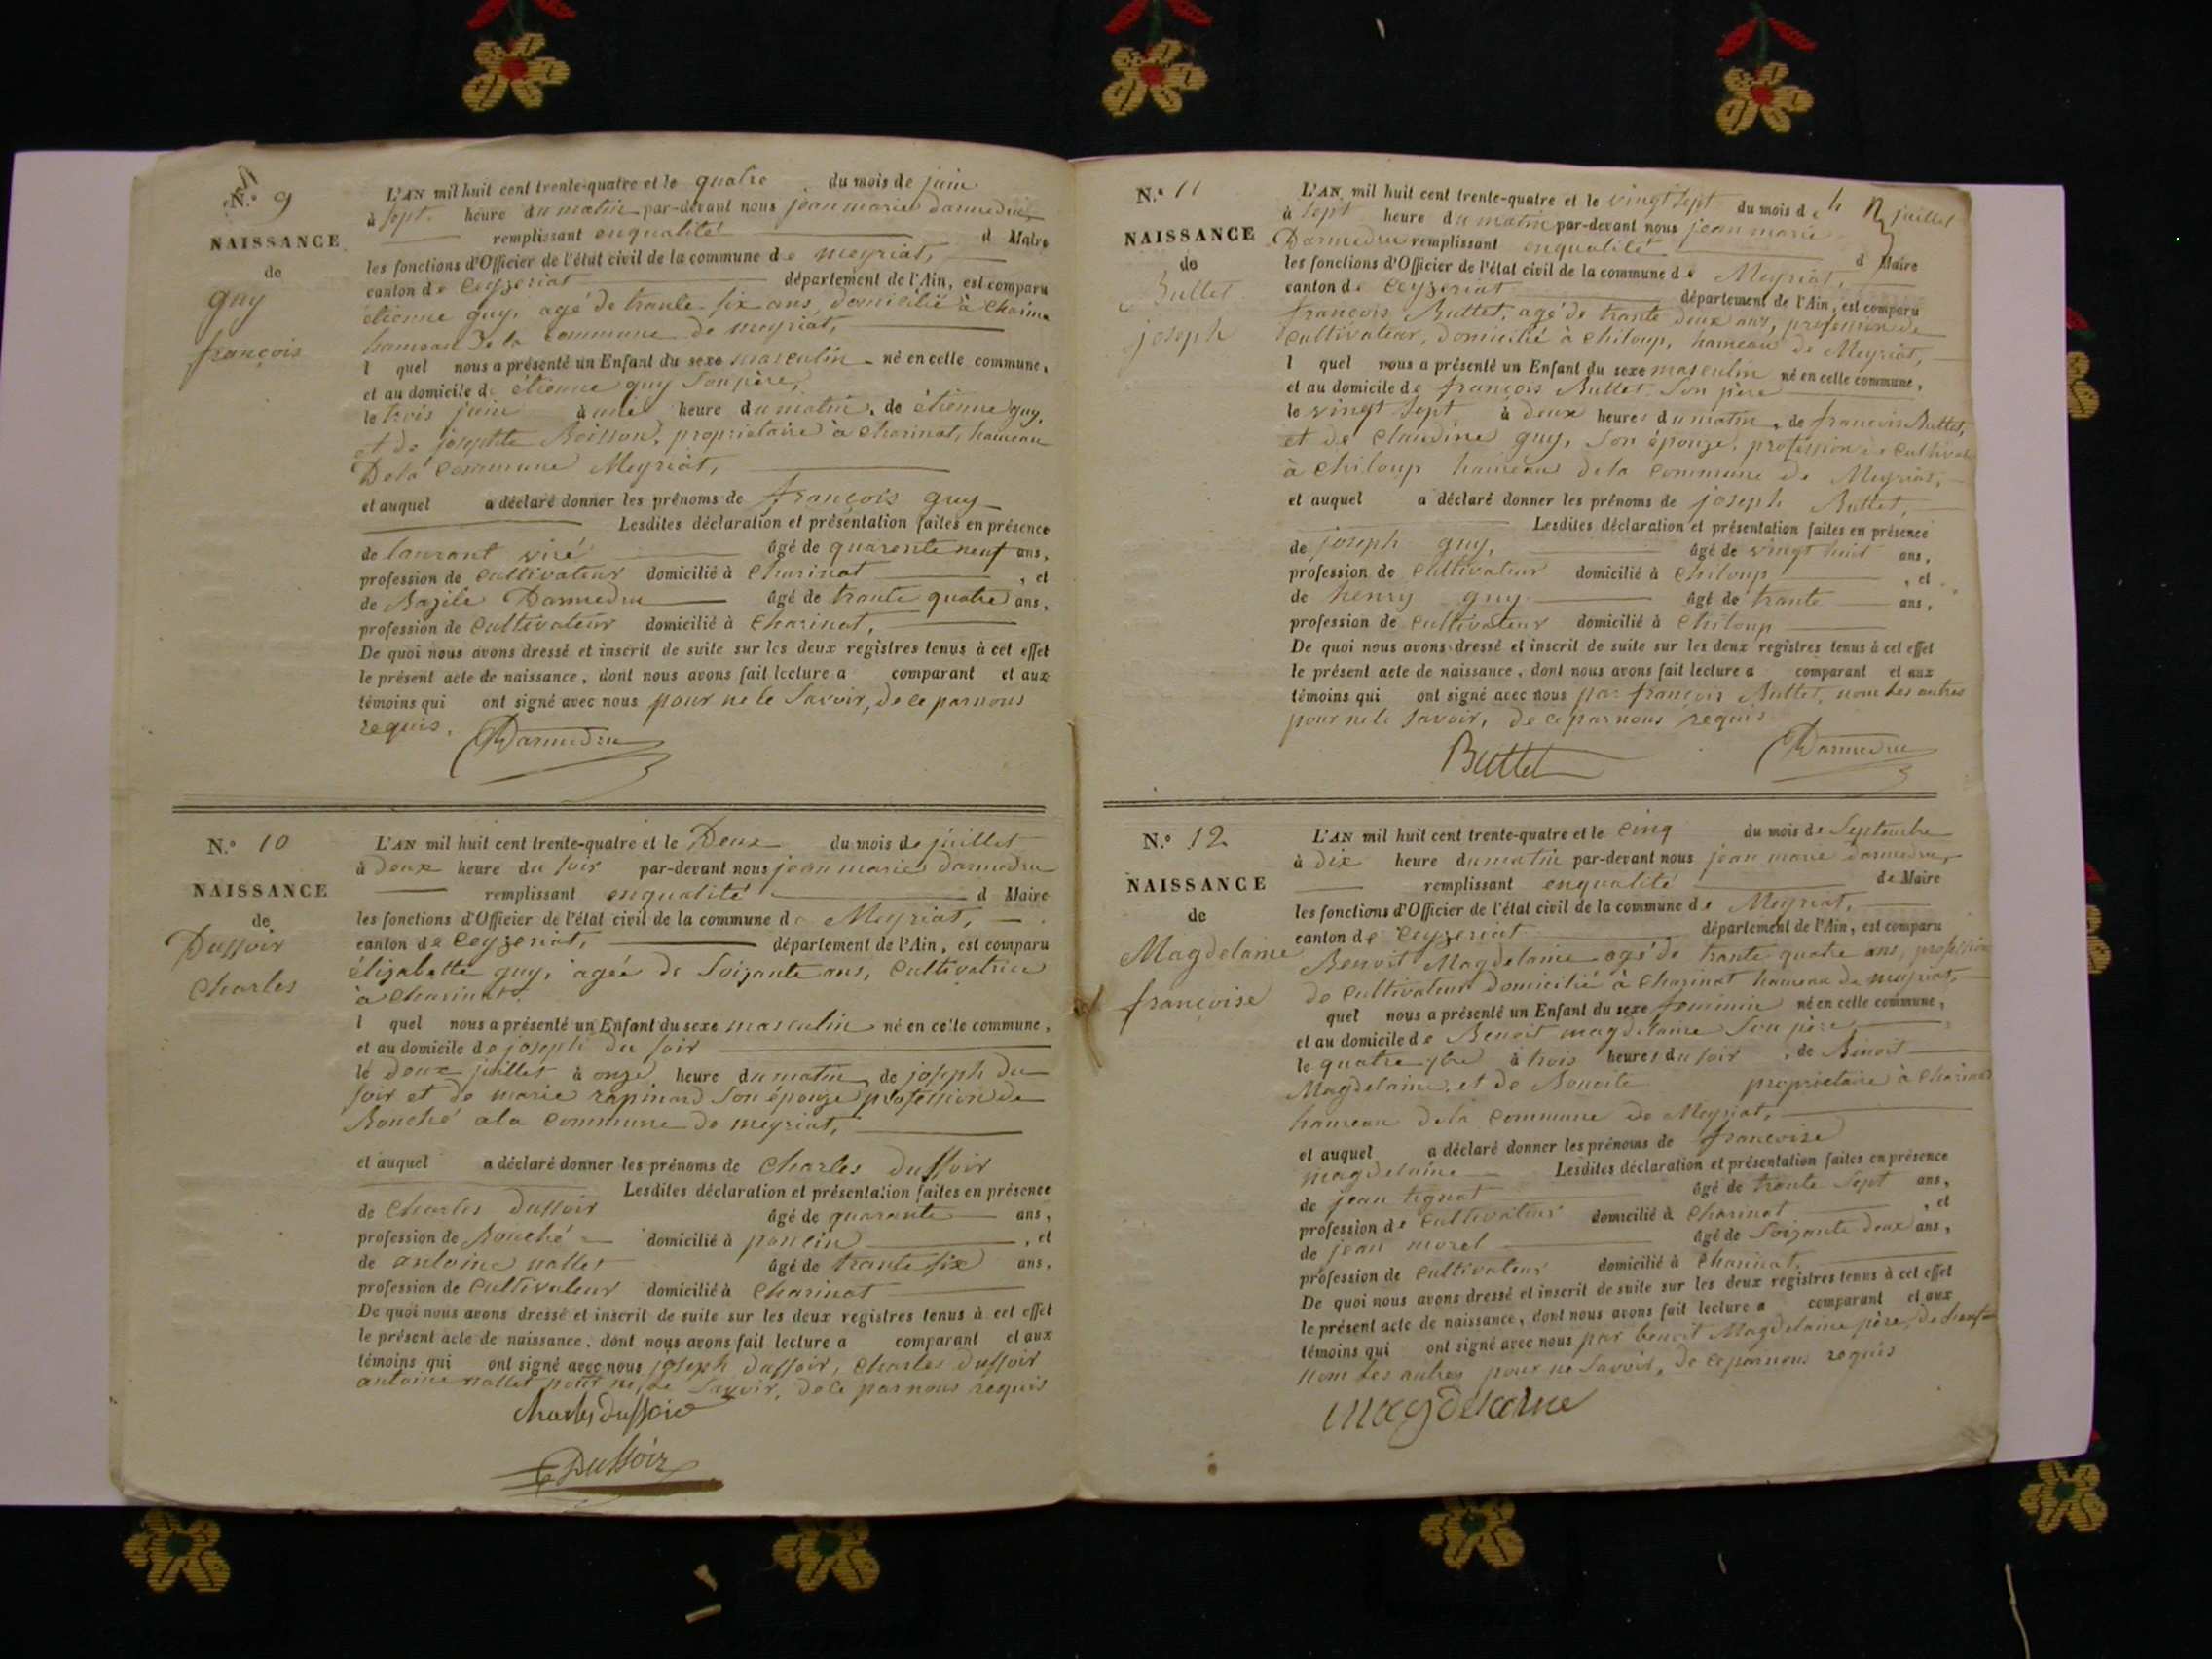 N.º 9
NAISSANCE
de
guy
françois
L'AN mil huit cent trente-quatre et le quatre du mois de juin
à sept heure du matin par-devant nous jean marie darmedru
remplissant enqualité d Maire
les fonctions d'Officier de l'état civil de la commune de meyriat,
canton de Ceyzeriat département de l'Ain, est comparu
étienne guy, agé de trante six ans, domicilié à Charina
hameau de la commune de meyriat,
l quel nous a présenté un Enfant du sexe masculin né en celle commune,
et au domicile d. étienne guy son père,
le trois juin à une heure du matin, de étienne guy,
et de josephte Boisson, proprietaire à charinat, hameau
Dela commune Meyriat,
et auquel a déclaré donner les prénoms de françois guy
Lesdites déclaration et présentation faites en présence
de laurant viré âgé de quarente neuf ans,
profession de Cultivateur domicilié à Charinat , et
de Bazile Darmedru âgé de trante quatre ans,
profession de Cultivateur domicilié à Charinat,
De quoi nous avons dressé et inscrit de suite sur les deux registres tenus à cet effet
le présent acte de naissance, dont nous avons fait lecture a comparant et aux
témoins qui ont signé avec nous pour ne le Savoir, de ce par nous
requis.
Darmedru
N.º 10
NAISSANCE
de
Dussoir
Charles
L'AN mil huit cent trente-quatre et le Deux du mois de juillet
à Deux heure du soir par-devant nous jean marie darmedru
remplissant enqualité d Maire
les fonctions d'Officier de l'état civil de la commune de Meyriat,
canton de Ceyzeriat, département de l'Ain, est comparu
élizabette guy, agée de Soizante ans, Cultivatrice
à Charinat.
l quel nous a présenté un Enfant du sexe masculin né en celle commune,
et au domicile de joseph du soir
le deux juillet à onze heure du matin, de joseph du
soir et de marie rapinard Son épouze profession de
Bouché ala commune de meyriat,
et auquel a déclaré donner les prénoms de Charles dussoir
Lesdites déclaration et présentation faites en présence
de Charles dussoir âgé de quarante ans,
profession de Bouché domicilié à poncin , et
de antoine nallet âgé de trante six ans,
profession de Cultivateur domicilié à Charinat
De quoi nous avons dressé et inscrit de suite sur les deux registres tenus à cet effet
le présent acte de naissance, dont nous avons fait lecture a comparant et aux
témoins qui ont signé avec nous joseph dussoir, Charles dussoir
antoine nallet pour ne le Savoir, de ce par nous requis
Charles dussoir
Dussoir
N.º 11
NAISSANCE
de
Buttet
joseph
L'AN mil huit cent trente-quatre et le vingt sept du mois de juillet
à sept heure du matin par-devant nous jean marie
Darmedru remplissant enqualité d Maire
les fonctions d'Officier de l'état civil de la commune de Meyriat,
canton de Ceyzeriat département de l'Ain, est comparu
françois Buttet, agé de trante deux ans, profession de
Cultivateur, domicilié à chiloup, hameau de Meyriat,
l quel nous a présenté un Enfant du sexe masculin né en celle commune,
et au domicile de françois Buttet Son père
le vingt sept à deux heures du matin, de francois Buttet,
et de claudine guy, Son épouze, profession de Cultivat
à chiloup hameau dela commune de Meyriat,
et auquel a déclaré donner les prénoms de joseph Buttet,
Lesdites déclaration et présentation faites en présence
de joseph guy, âgé de vingt huit ans,
profession de Cultivateur domicilié à Chiloup , et
de henry guy âgé de trante ans,
profession de Cultivateur domicilié à Chiloup
De quoi nous avons dressé et inscrit de suite sur les deux registres tenus à cet effet
le présent acte de naissance, dont nous avons fait lecture a comparant et aux
témoins qui ont signé avec nous par françois Buttet, nom les autres
pour ne le Savoir, de ce par nous requis
Buttet
Darmedru
N.º 12
NAISSANCE
de
Magdelaine
françoise
L'AN mil huit cent trente-quatre et le Cinq du mois de Septembre
à dix heure du matin par-devant nous jean marie darmedru,
remplissant enqualité de Maire
les fonctions d'Officier de l'état civil de la commune de Meyriat,
canton de Ceyzeriat département de l'Ain, est comparu
Benoit Magdelaine agé de trante quatre ans, profession
de Cultivateur domicilié à Charinat hameau de meyriat,
quel nous a présenté un Enfant du sexe feminin né en celle commune,
et au domicile de Benoit magdelaine Son père
le quatre 7bre à trois heures du soir , de Benoit
Magdelaine, et de Benoite proprietaire à Charinat
hameau dela Commune de Meyriat,
et auquel a déclaré donner les prénoms de françoise
magdelaine Lesdites déclaration et présentation faites en présence
de jean tignat âgé de trante sept ans,
profession de Cultivateur domicilié à Charinat , et
de jean morel âgé de Soizante deux ans,
profession de Cultivateur domicilié à Charinat,
De quoi nous avons dressé et inscrit de suite sur les deux registres tenus à cet effet
le présent acte de naissance, dont nous avons fait lecture a comparant et aux
témoins qui ont signé avec nous par benoit Magdelaine père de
nom les autres pour ne Savoir, de ce par nous requis
magdelaine